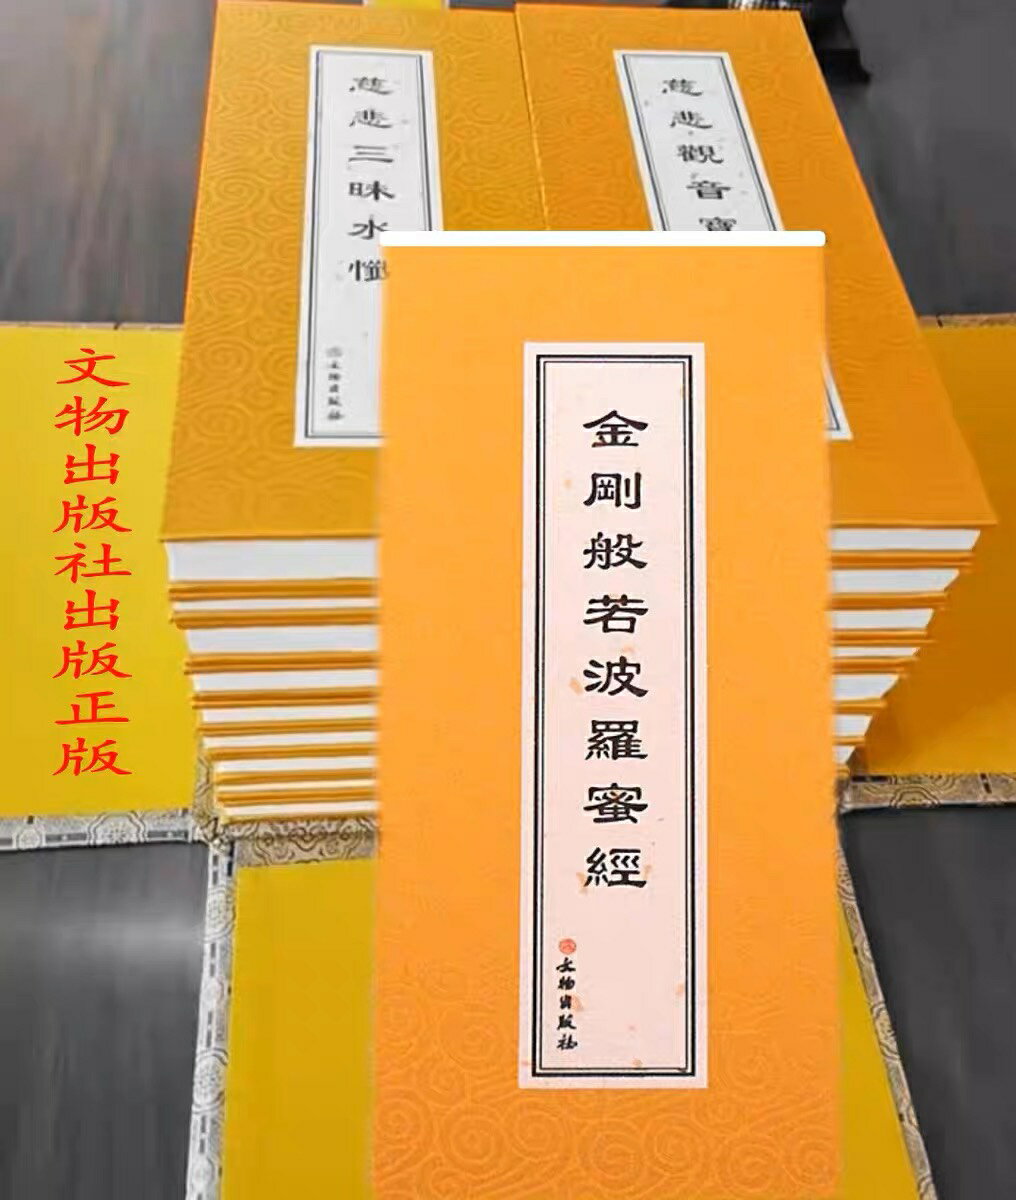 慈悲三昧水懺
文物出版社
慈悲觀音寶
文物出版社出版正版
金剛般若波羅蜜經
文物出版社